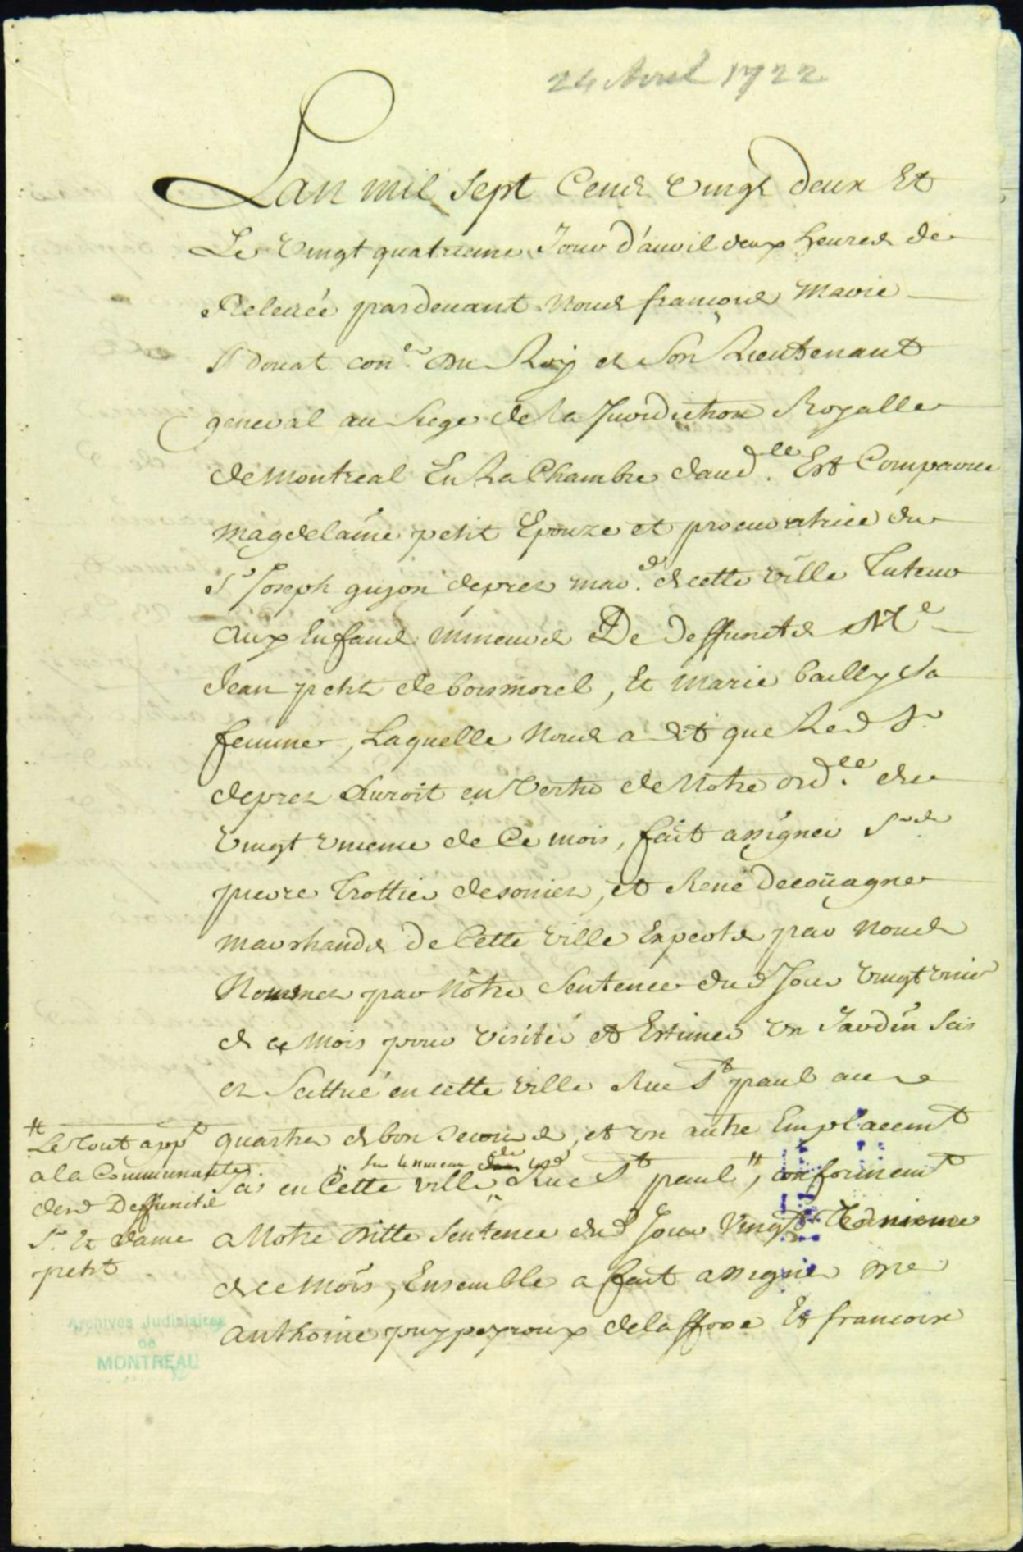 24 Avril 1722
Lan mil sept Cent vingt deux Et
Le Vingt quatrieme Jour d'auvil deux heures de
Relevée pardevant Nous francois Marie
Bouat con.er du Roy et Son Lieutenant
general au Siege de La Jurisdiction Royalle
de Montreal En La Chambre daud.ce Est Comparue
Magdelaine petit Epouze et procuratrice du
Sr Joseph guyon deprez mar.d de cette ville Tuteur
aux Enfans mineurs De deffunts Me
Jean petit de boismorel, Et Marie bailly sa
femme, Laquelle Nous a dit que Led Sr
deprez auroit en Vertu de Notre ord.ce du
vingt unieme de Ce mois, fait assigner Srs
pierre Trottier desoniers, et René Decoüagne
marchands de Cette ville Experts par Nous
Nommez par Nôtre Sentence dud Jour vingt unie
de ce Mois pour visiter et Estimer un Jardin sis
et Scittué en cette ville Rue St paul au
quartier de bon secours, et un autre Emplacemt
# Le tout appt
a la Communauté
desd Deffunts
Sr Et dame
petit
sis en Cette ville Rue St paul #, conformemt
a Notre ditte Sentence dud Jour Vingt
de ce Mois, Ensemble a fait assigner Me
Anthoine puypeyroux delafosse Et francois
Archives Judiciaires
de
MONTREAL